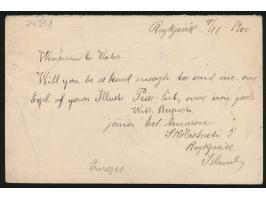 24291
Reykjavik 9/11 1900
Wenham & Water.
Will you be so kind enough to send me one
Expl. of yours Illustr. Price-list, over iron goods
With Respect.
junior Erl. Arnason
Skólastræti 5
Reykjavik
Island
Europe.